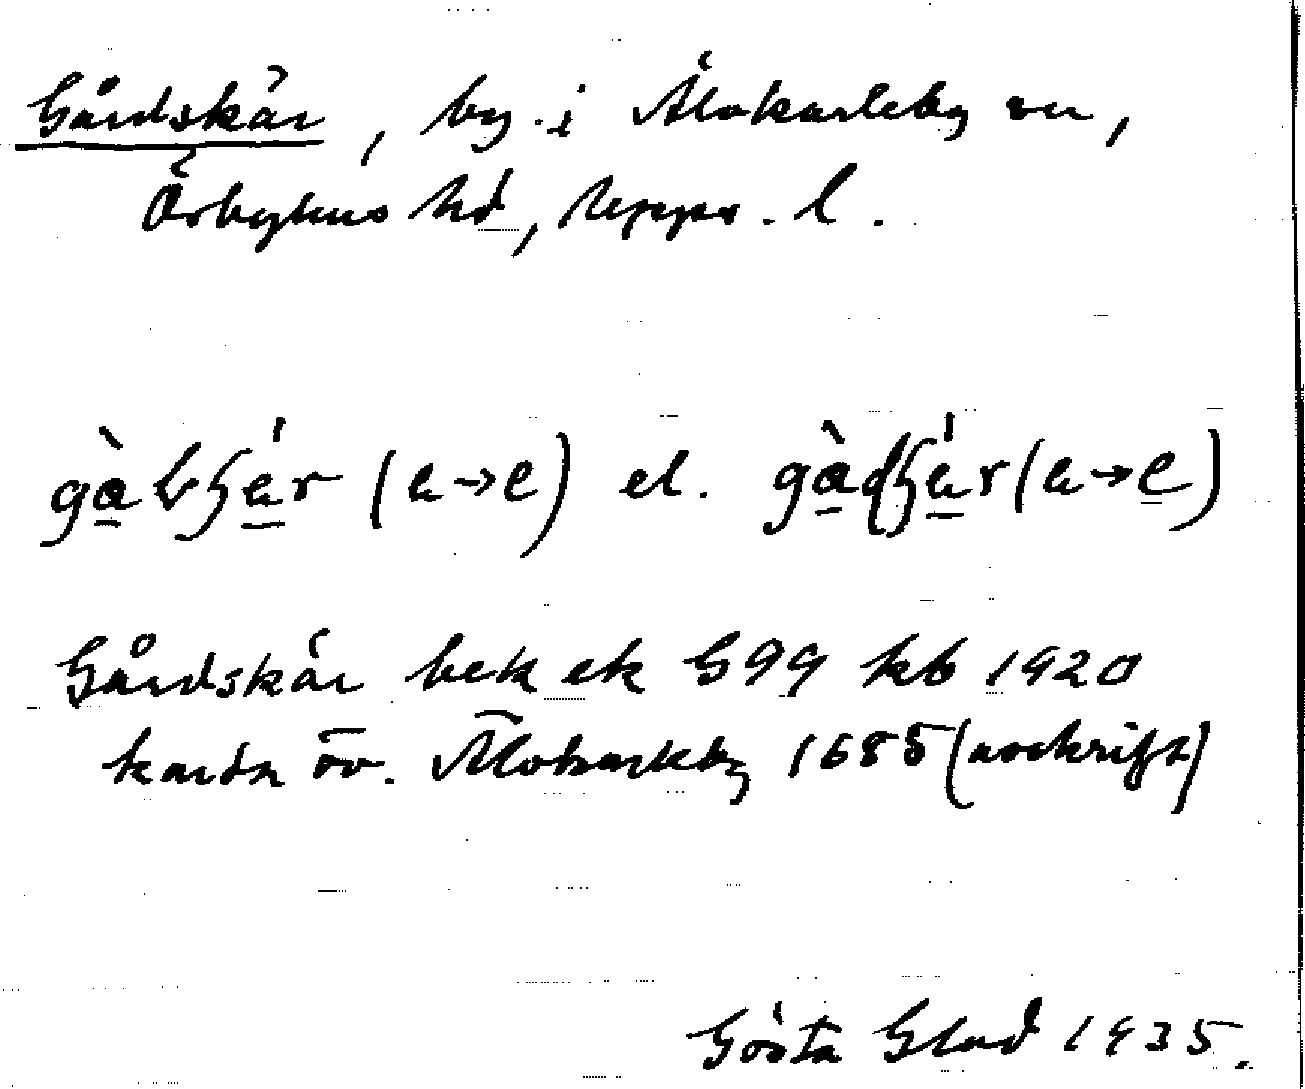 Gårdskär, by i Älvkarleby sn,
Örbyhus hd, Upps. l.
(a→e) el. (a→e)
Gårdskär bek ek G99 kb 1920
karta öv. Älvkarleby 1685 (avskrift)
Gösta Glad 1935.